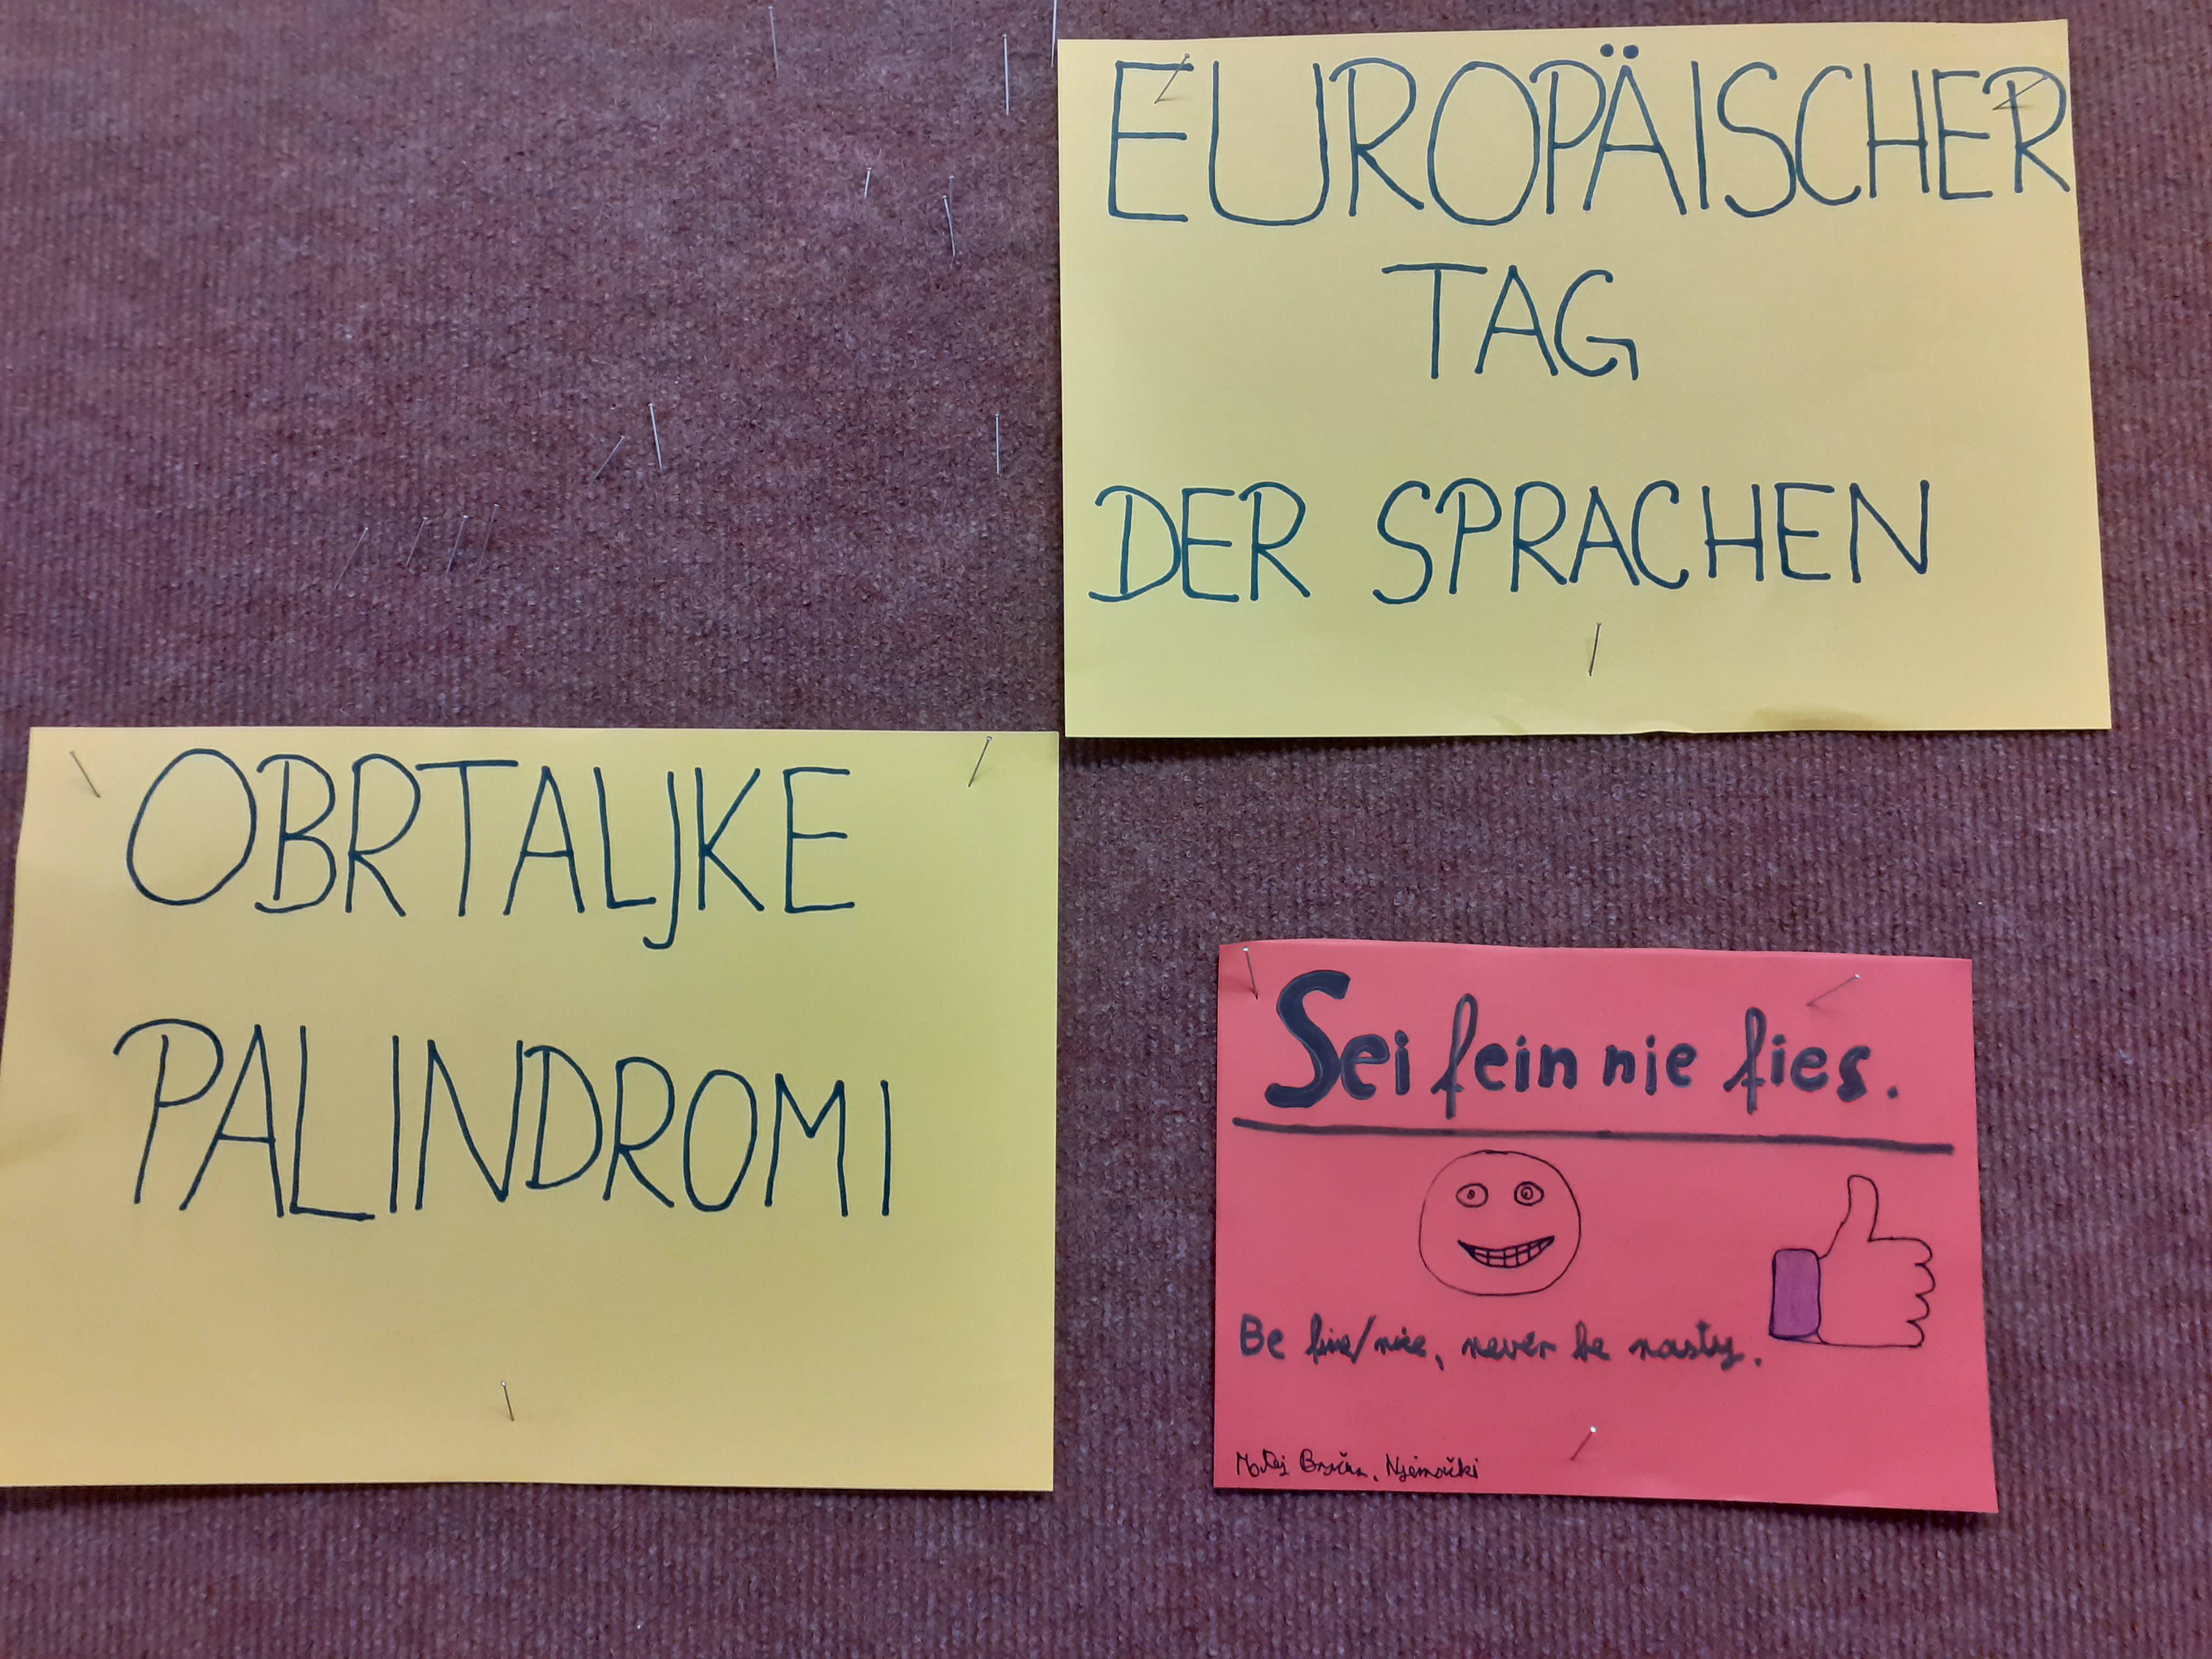 EUROPÄISCHER
TAG
DER SPRACHEN
OBRTALJKE
PALINDROMI
Sei fein nie fies.
Be fine/nice, never be nasty.
Matej Njemački